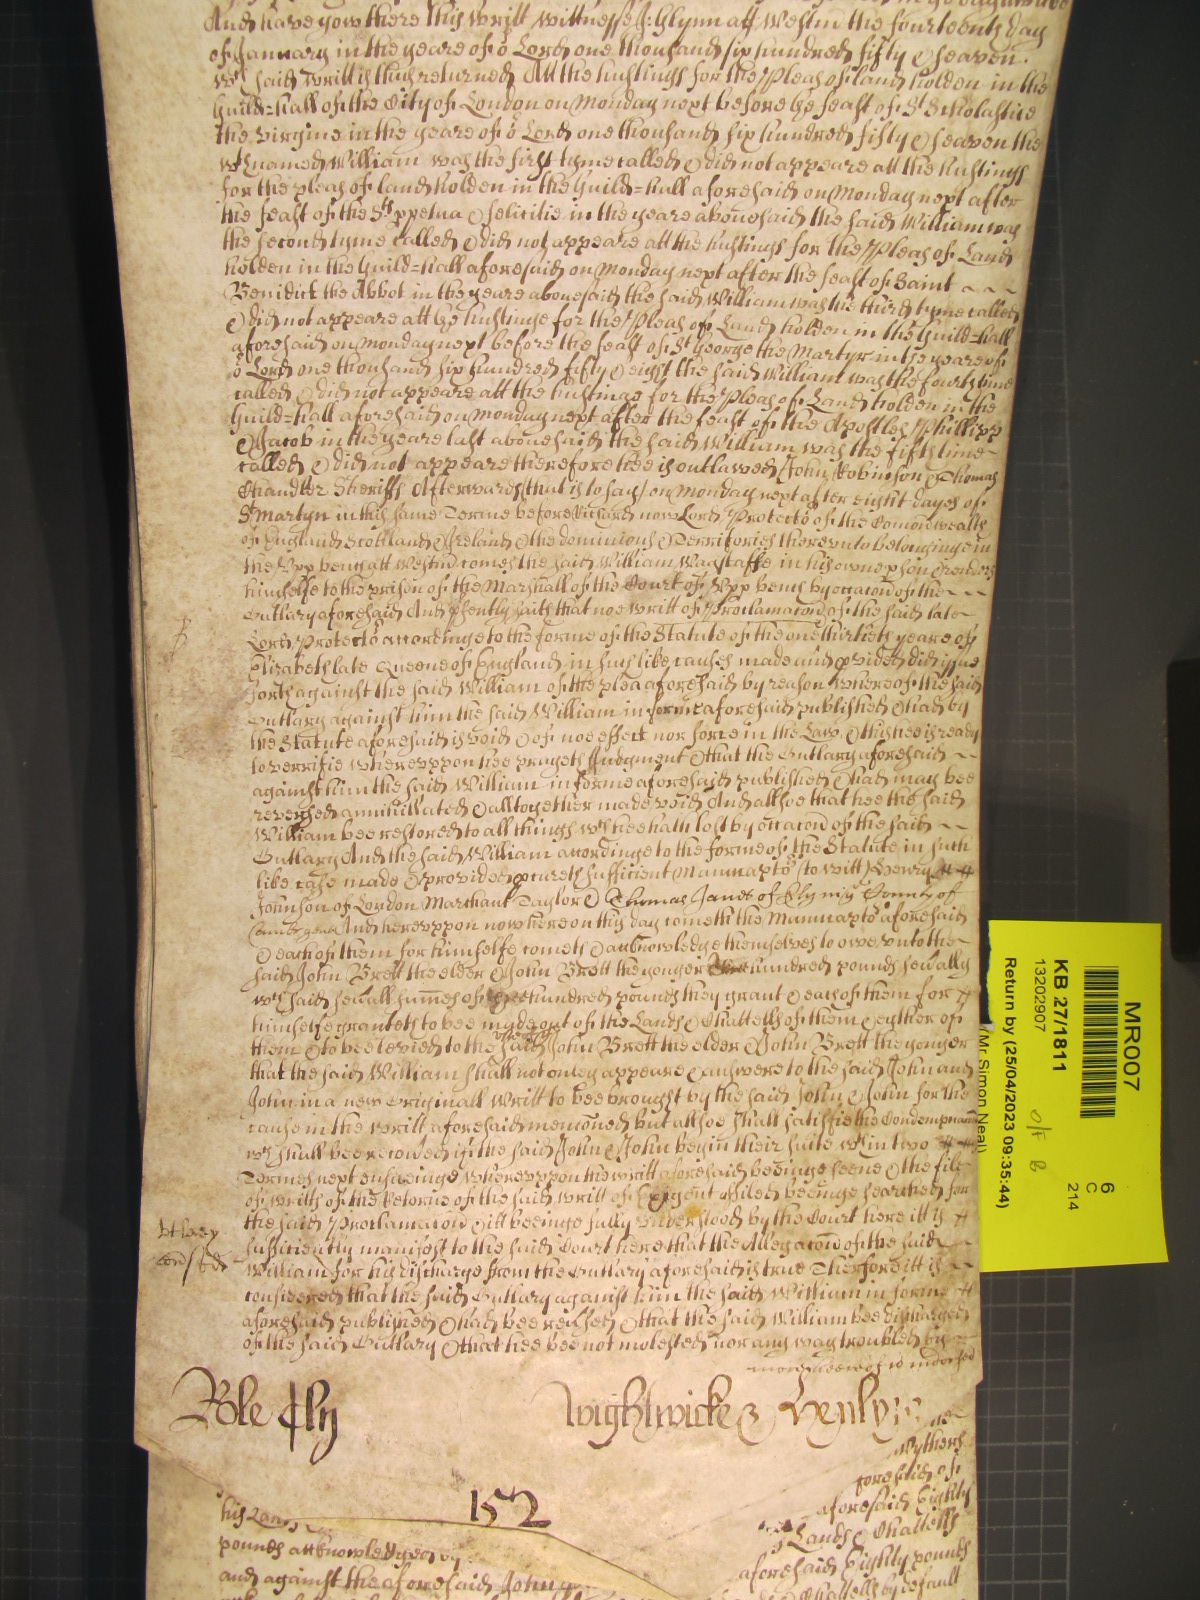 And have yow there this writt wittnesse J: Glynn att Westm the fourteenth day
of January in the yeare of o Lord one thousand six hundred fifty & seaven.
wch said writt is thus returned Att the hustings for the Pleas of land holden in the
Guild=hall of the City of London on Monday next before the feast of St Scholastice
the virgine in the yeare of o Lord one thousand six hundred fifty & seaven the
wthnamed William was the first tyme called & did not appeare att the hustings
for the pleas of land holden in the Guild=hall aforesaid on Monday next after
the feast of the Sts ppetua & felicitie in the yeare abovesaid the said William was
the second tyme called & did not appeare att the hustings for the Pleas of Land
holden in the Guild=hall aforesaid on Monday next after the feast of Saint
Benidict the Abbot in the yeare abovesaid the said William was the third tyme called
& did not appeare att the hustings for the Pleas of Land holden in the Guild=hall
aforesaid on Monday next before the feast of St George the Martyr in the yeare of
o Lord one thousand six hundred fifty & eight the said William was the fourth time
called & did not appeare att the hustings for the Pleas of Land holden in the
Guild=hall aforesaid on Monday next after the feast of the Apostles Phillipp
& Jacob in the yeare last abovesaid the said William was the fifth time
called & did not appeare therefore hee is outlawed John Robinson & Thomas
Chandler Sheriffs Afterwards (that is to say) on Monday next after eight dayes of
St Martyn in this same Terme before Richard now Lord Protecto of the Comonwealth
of England Scottland & Ireland & the dominions & Territories thereunto belonginge in
the Upp bench att Westm comes the said William Wagstaffe in his owne pson & renders
himselfe to the prison of the Marshall of the Court of Upp bench by occacon of the
Outlary aforesaid And psently saith that noe writt of Proclamacon of the said late
Lord Protecto accordinge to the forme of the Statute of the one & thirtieth yeare of
Elizabeth late Queene of England in such like causes made and pvided did issue
forth against the said William of the plea aforesaid by reason whereof the said
Outlary against him the said William in forme aforesaid published & had by
the Statute aforesaid is void & of noe effect nor force in the Law & this hee is ready
to verrifie whereuppon hee prayeth Judgment & that the Outlary aforesaid
against him the said William in forme aforesaid published & had may bee
reversed annihillated & alltogether made void And allsoe that hee the said
William bee restored to all things wch hee hath lost by occacon of the said
Outlary And the said William accordinge to the forme of the Statute in such
like case made & provided pcureth sufficient Manucapto (to witt) Henry
Johnson of London Marchant Taylor & Thomas Janes of Ely in ye County of
And hereuppon now here on this day cometh the Manucapto aforesaid
& each of them for himselfe comets & acknowledge themselves to owe unto the
said John Brett the elder & John Brett the yonger hundred pounds sevally
wch said sevall summes of hundred pounds they grant & each of them for
himselfe granteth to bee made out of the Lands & Chattells of them & eyther of
them & to bee levied to the said John Brett the elder & John Brett the yonger
that the said William shall not onely appeare & answere to the said John and
John in a new Originall writt to bee brought by the said John & John for the
cause in the writt aforesaid menconed but allsoe shall satisfie the Condempnacon
wch shall bee recoved if the said John & John begin their suite wthin two
Termes next ensueinge whereuppon the writt aforesaid beeinge seene & the file
of writts of the Retorne of the said writt of Exigent affiled beeinge searched for
the said Proclamacon & itt beeinge fully understood by the Court here itt is
sufficiently manifest to the said Court here that the Allegacon of the said
William for his discharge from the Outlary aforesaid is true Therfore itt is
considered that the said Outlary against him the said William in forme
aforesaid published & had bee revsed & that the said William bee discharged
of the said Outlary & that hee bee not molested nor any way troubled by
Role Ely Wightwicke & Henly
152
his Lands
pounds acknowledged by
and against the aforesaid John
aforesaid of
aforesaid Eightly
Lands & Chattells
aforesaid Eightly pounds
Chattells by default
MR007
6
C
214
KB 27/1811
13202907
Return by (25/04/2023 09:35:44)
(Mr Simon Neal)